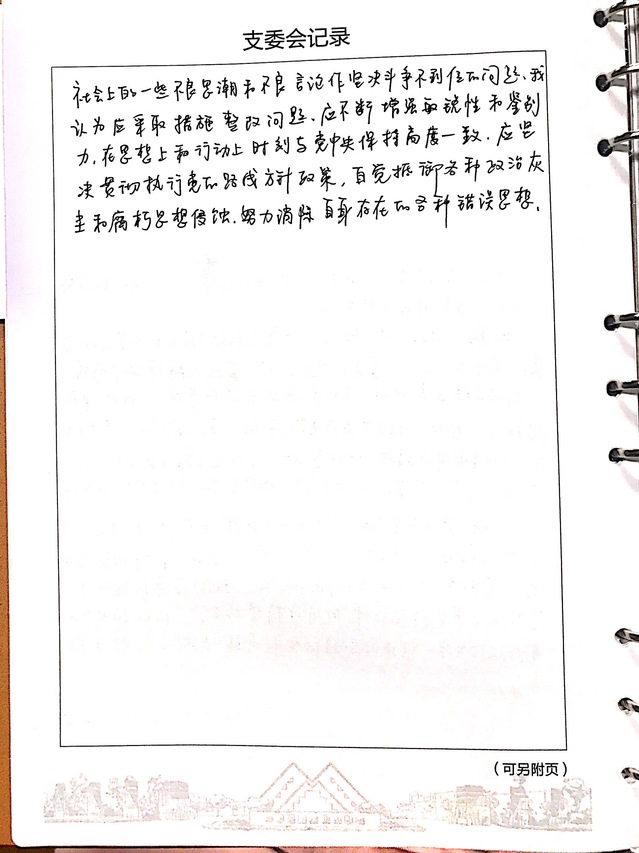 支委会记录
社会上的一些不良思潮和不良言论作坚决斗争不到位的问题、我
认为应采取措施整改问题、应不断增强敏锐性和鉴别
力、在思想上和行动上时刻与党中央保持高度一致、应坚
决贯彻执行党的路线方针政策，自觉抵御各种政治灰
尘和腐朽思想侵蚀、努力消除自身存在的各种错误思想。
（可另附页）